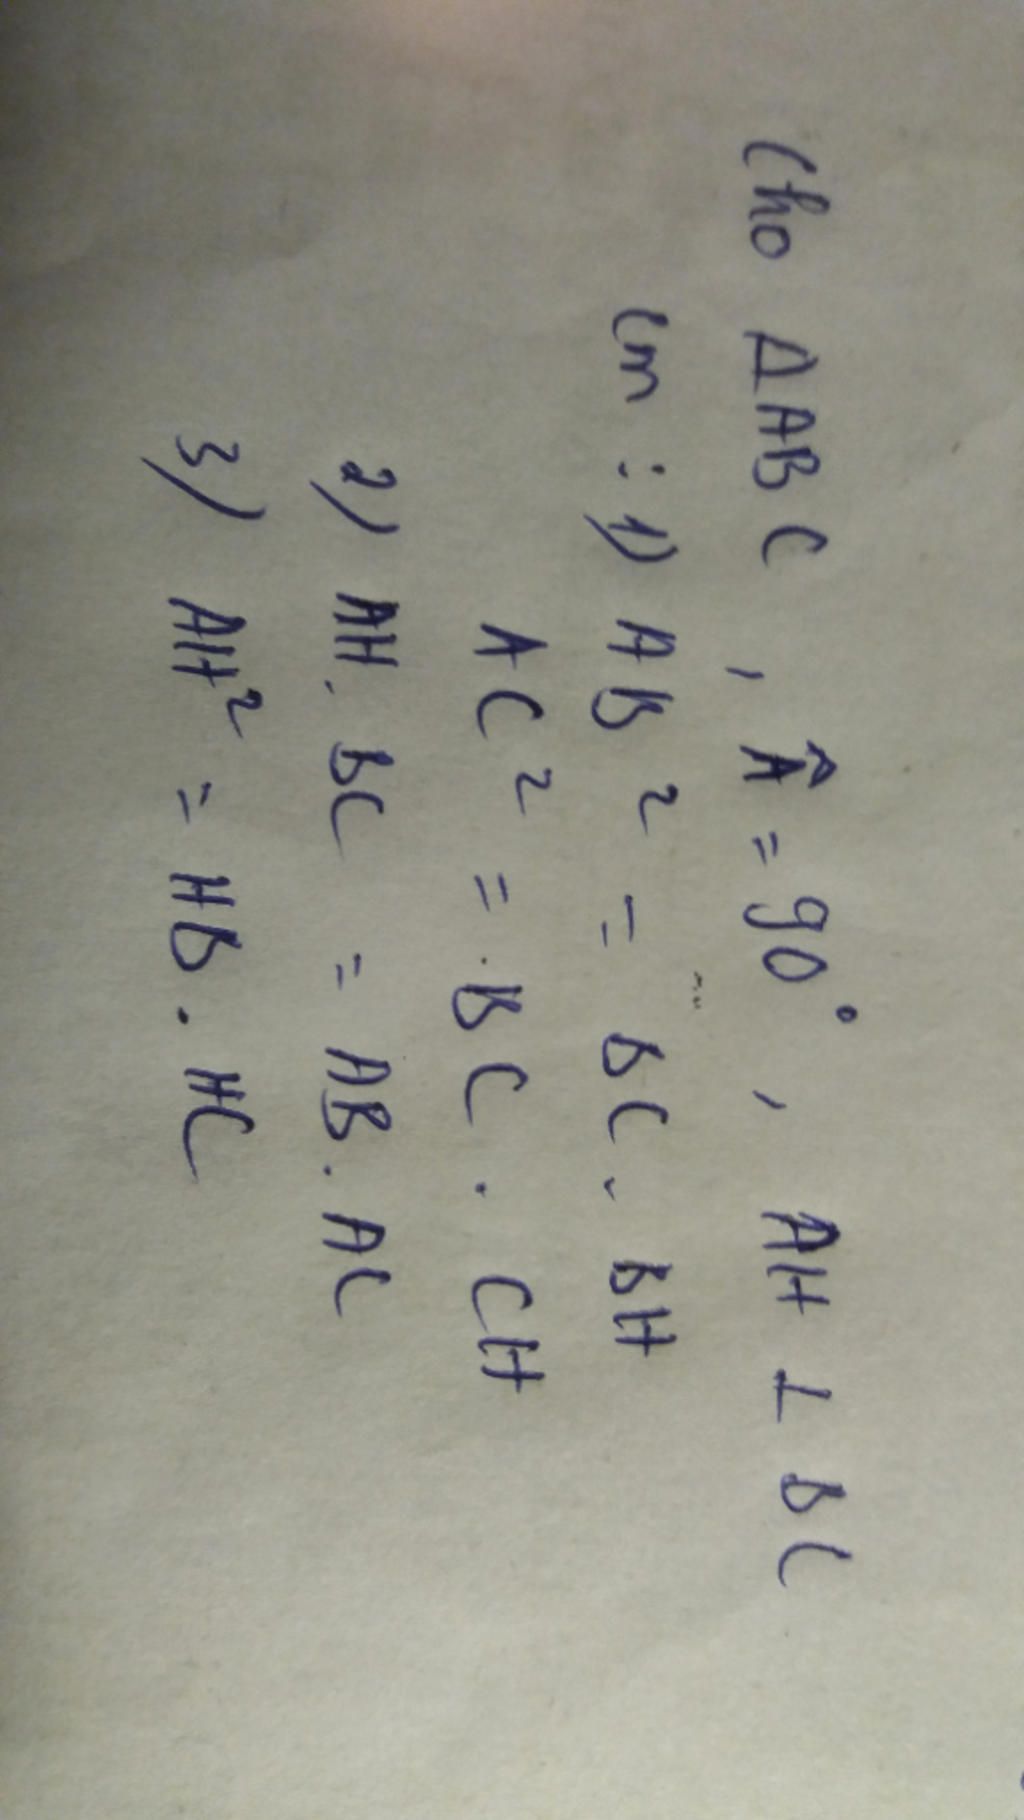 Cho ΔABC , Â = 90° , AH ⊥ BC
cm : 1) AB² = BC . BH
AC² = BC . CH
2) AH . BC = AB . AC
3) AH² = HB . HC